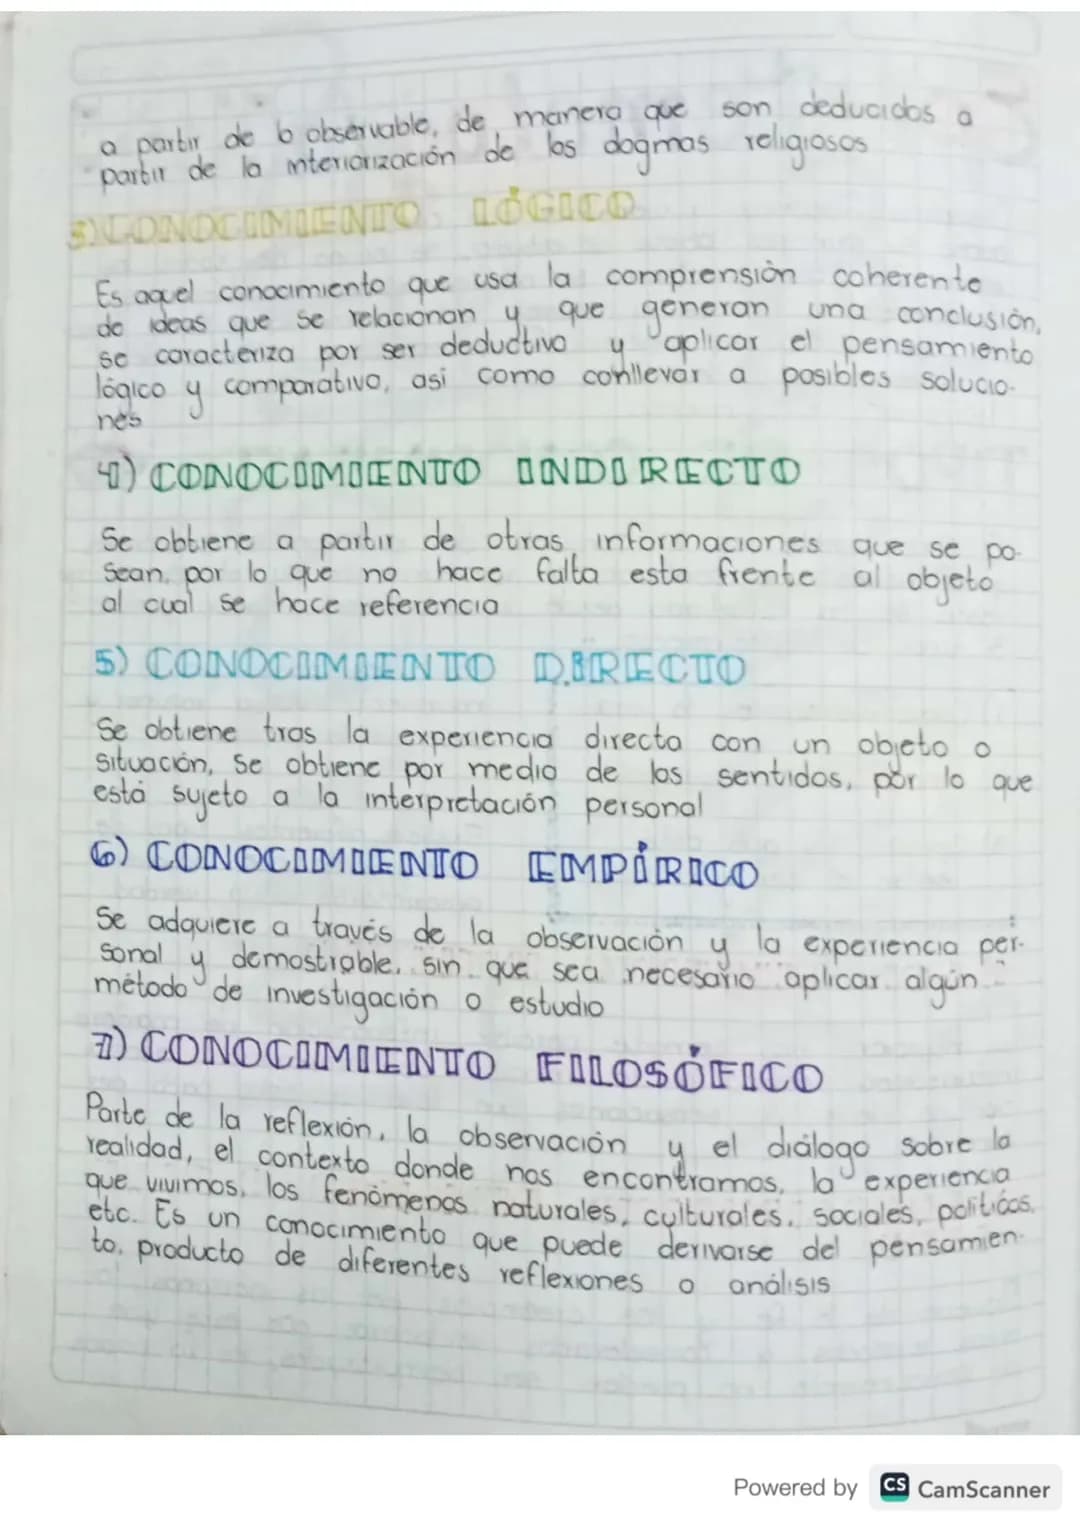 a partir de lo observable, de manera que son deducidos a
partir de la interiorización de los dogmas religiosos
3) CONOCIMIENTO LÓGICO
Es aquel conocimiento que usa la comprensión coherente
de ideas que se relacionan y que generan una conclusión,
se caracteriza por ser deductivo y aplicar el pensamiento
lógico y comparativo, asi como conllevar a posibles solucio-
nes
4) CONOCIMIENTO INDIRECTO
Se obtiene a partir de otras informaciones que se po-
sean, por lo que no hace falta esta frente al objeto
al cual se hace referencia
5) CONOCIMIENTO DIRECTO
Se obtiene tras la experiencia directa con un objeto o
situación, Se obtiene por medio de los sentidos, por lo que
está sujeto a la interpretación personal
6) CONOCIMIENTO EMPÍRICO
Se adquiere a través de la observación y la experiencia per-
sonal y demostrable, sin que sea necesario aplicar algún
método de investigación o estudio
7) CONOCIMIENTO FILOSÓFICO
Parte de la reflexión, la observación y el diálogo sobre la
realidad, el contexto donde nos encontramos, la experiencia
que vivimos, los fenómenos naturales, culturales, sociales, politicos,
etc. Es un conocimiento que puede derivarse del pensamien-
to, producto de diferentes reflexiones o análisis
Powered by CS CamScanner